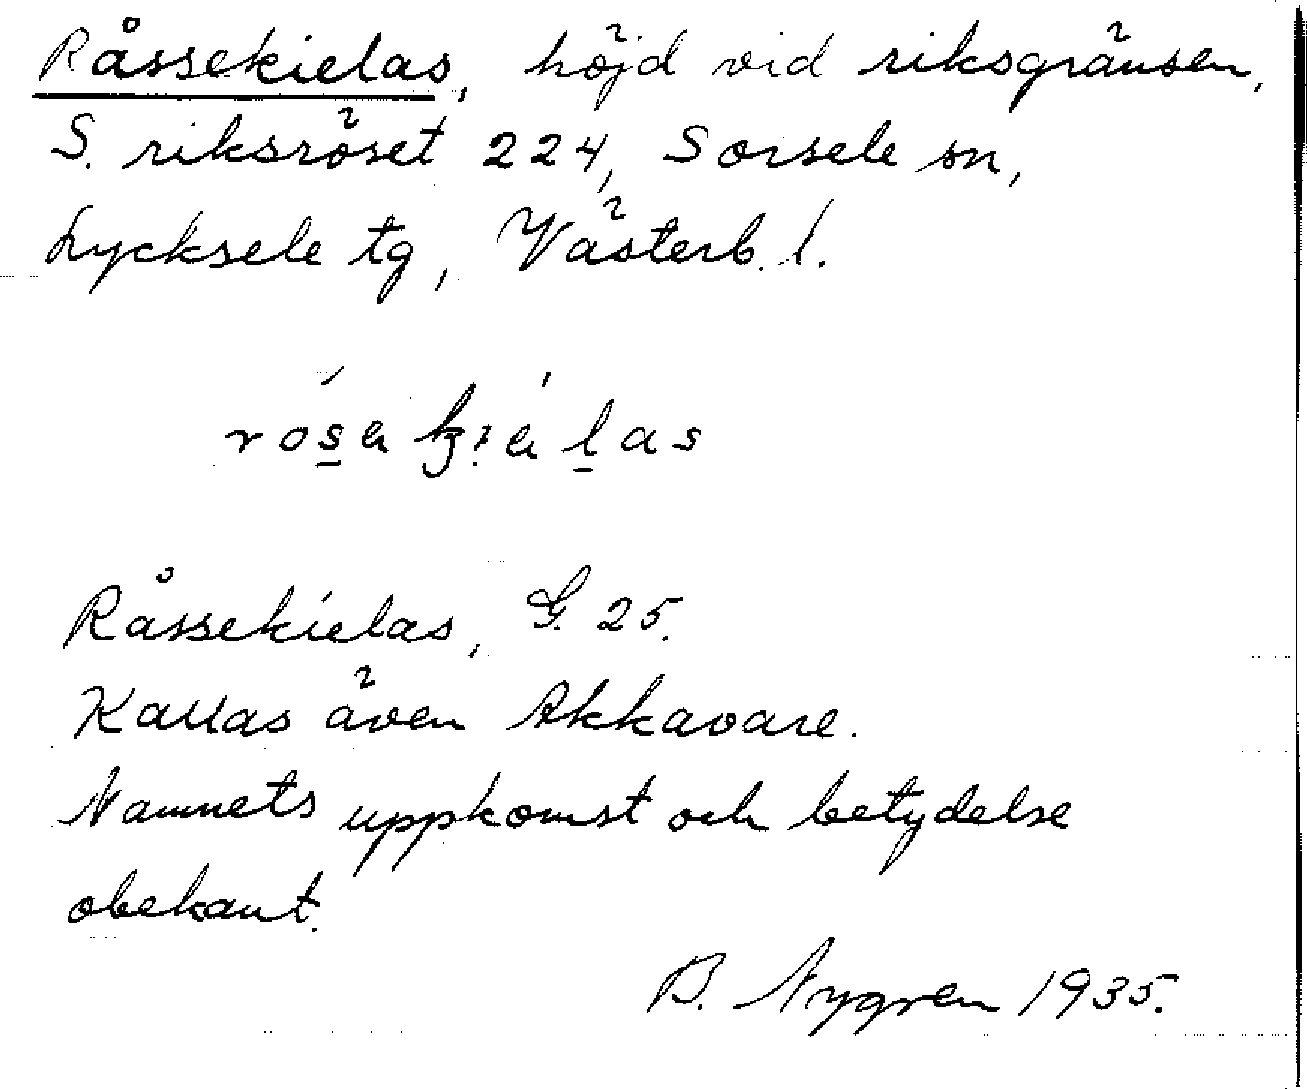 Råssekielas, höjd vid riksgränsen,
S. riksröset 224, Sorsele sn,
Lycksele tg, Västerb. l.
Råssekielas, G. 25.
Kallas även Akkavare.
Namnets uppkomst och betydelse
obekant.
B. Nygren 1935.